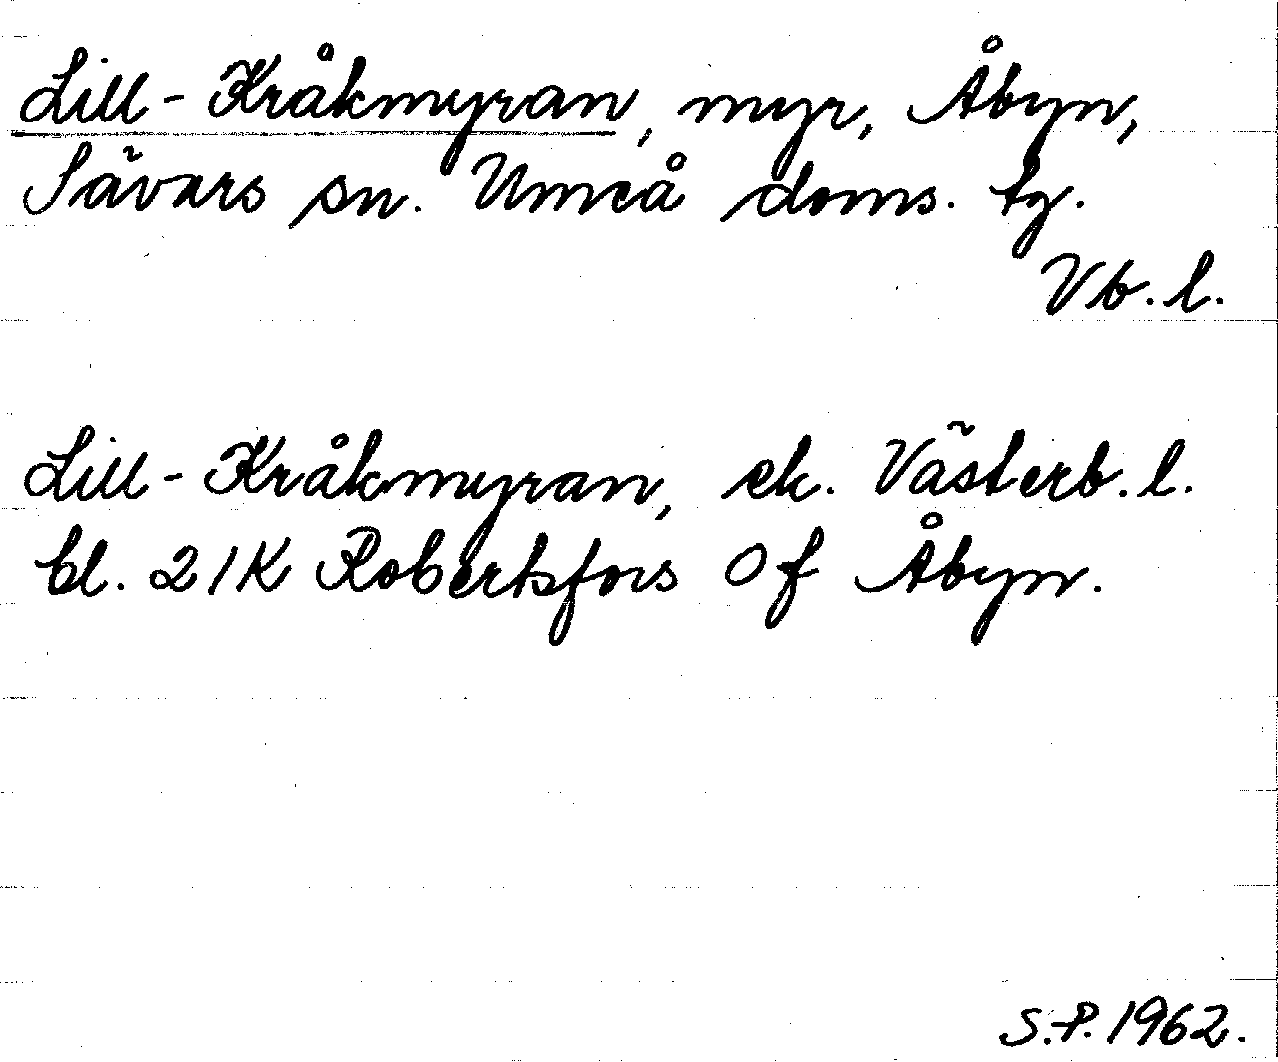 Lill-Kråkmyran, myr, Åbyn,
Sävars sn. Umeå doms. tg.
Vb. l.
Lill-Kråkmyran, ek. Västerb. l.
bl. 21K Robertsfors Of Åbyn.
S.P. 1962.